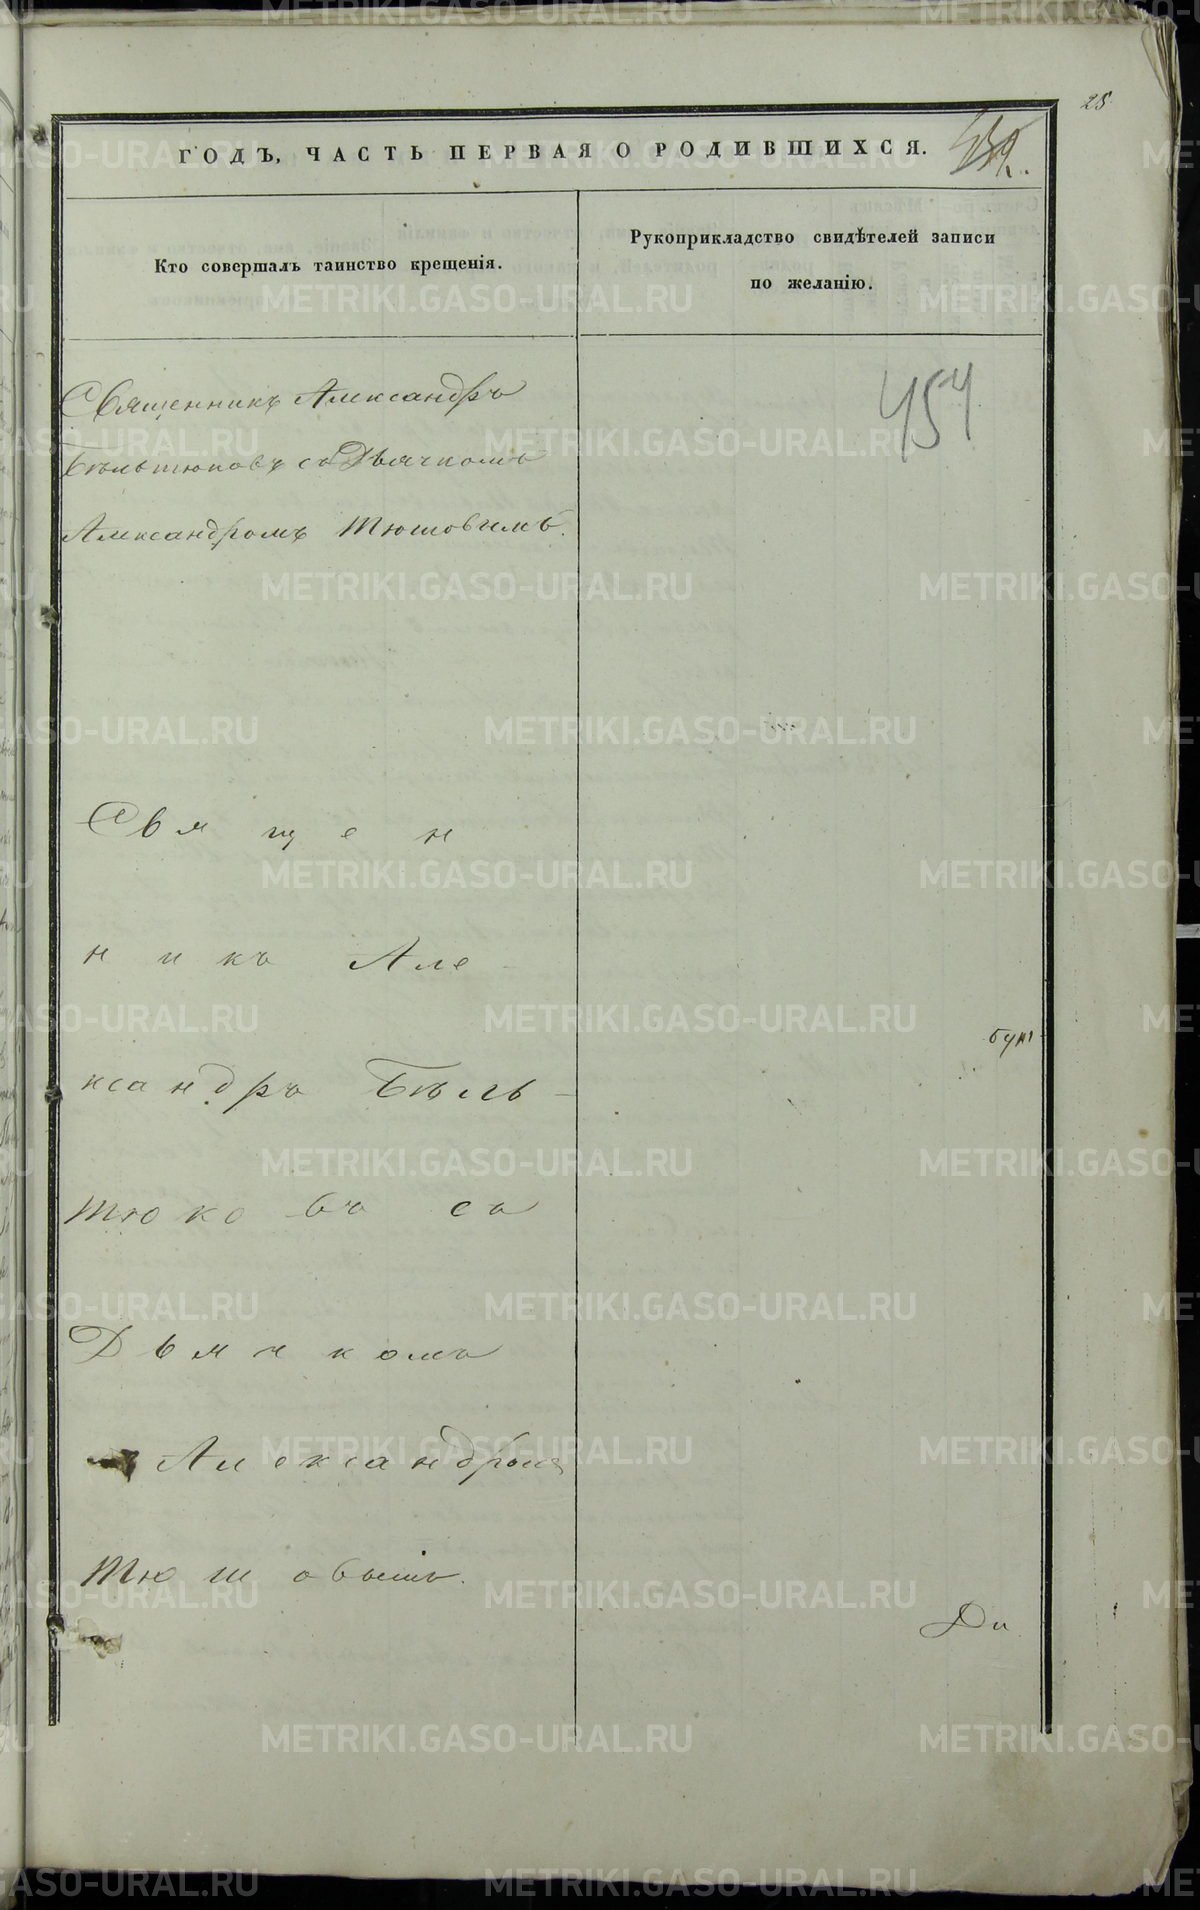 25
ГОДЪ, ЧАСТЬ ПЕРВАЯ О РОДИВШИХСЯ.
Кто совершалъ таинство крещенія.
Рукоприкладство свидѣтелей записи
по желанію.
454
Священникъ Александръ
Бѣльтюковъ съ Дьячкомъ
Александромъ Тюшовымъ.
Священ
никъ Але
ксандръ Бѣль-
тюковъ съ
Дьячкомъ
Александромъ
Тюшовымъ.
METRIKI.GASO-URAL.RU